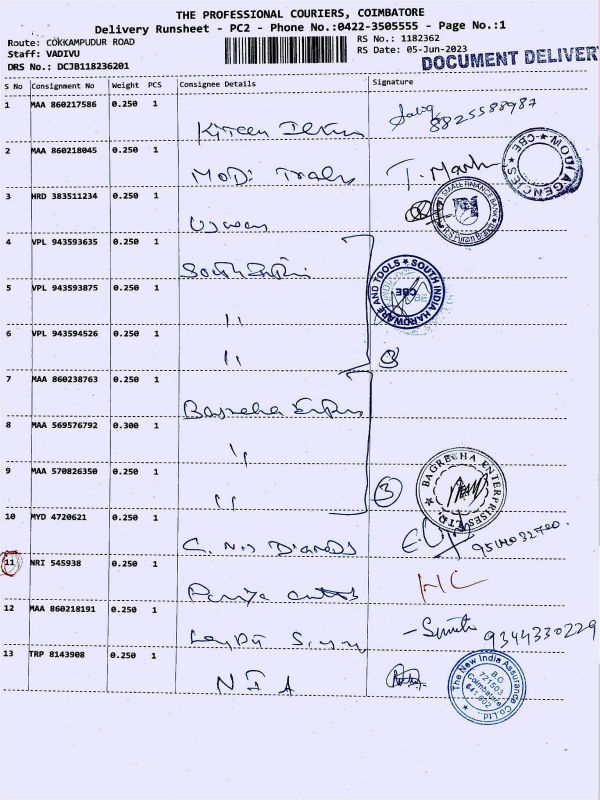 THE PROFESSIONAL COURIERS, COIMBATORE
Delivery Runsheet - PC2 - Phone No.:0422-3505555 - Page No.:1
Route: COKKAMPUDUR ROAD
RS No.: 1182362
Staff: VADIVU
RS Date: 05-Jun-2023
DOCUMENT DELIVER
DRS No.: DCJB118236201
S No Consignment No Weight PCS Consignee Details Signature
1 MAA 860217586 0.250 1
8825588987
2 MAA 860218045 0.250 1
MODI
MODI AGENCIES CBE
3 HRD 383511234 0.250 1
SMALL FINANCE BANK
4 VPL 943593635 0.250 1
South
SOUTH INDIA HARDWARE AND TOOLS CBE
5 VPL 943593875 0.250 1
"
6 VPL 943594526 0.250 1
" 3
7 MAA 860238763 0.250 1
Bagrecha
8 MAA 569576792 0.300 1
"
9 MAA 570826350 0.250 1
" 3
BAGRECHA ENTERPRISES LTD.
10 MYD 4720621 0.250 1
11 NRI 545938 0.250 1
HC
12 MAA 860218191 0.250 1
9344330229
13 TRP 8143908 0.250 1
N I A
The New India Assurance Co. Ltd.
B.O
721503
Coimbatore
641 002